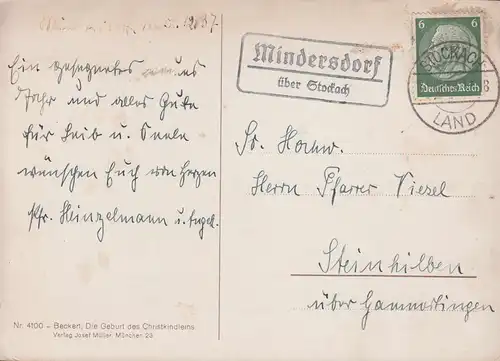 1937.
Ein gesegnetes neues
Jahr und alles Gute
für Leib u. Seele
wünschen Euch von Herzen
Pfr. Heinzelmann u. Engelb.
Nr. 4100 - Beckert, Die Geburt des Christkindleins
Verlag Josef Müller, München 23
Mindersdorf
über Stockach
6 6
Deutsches Reich
STOCKACH
LAND
Sr. Hochw.
Herrn Pfarrer Viesel
Steinhilben
über Gammertingen